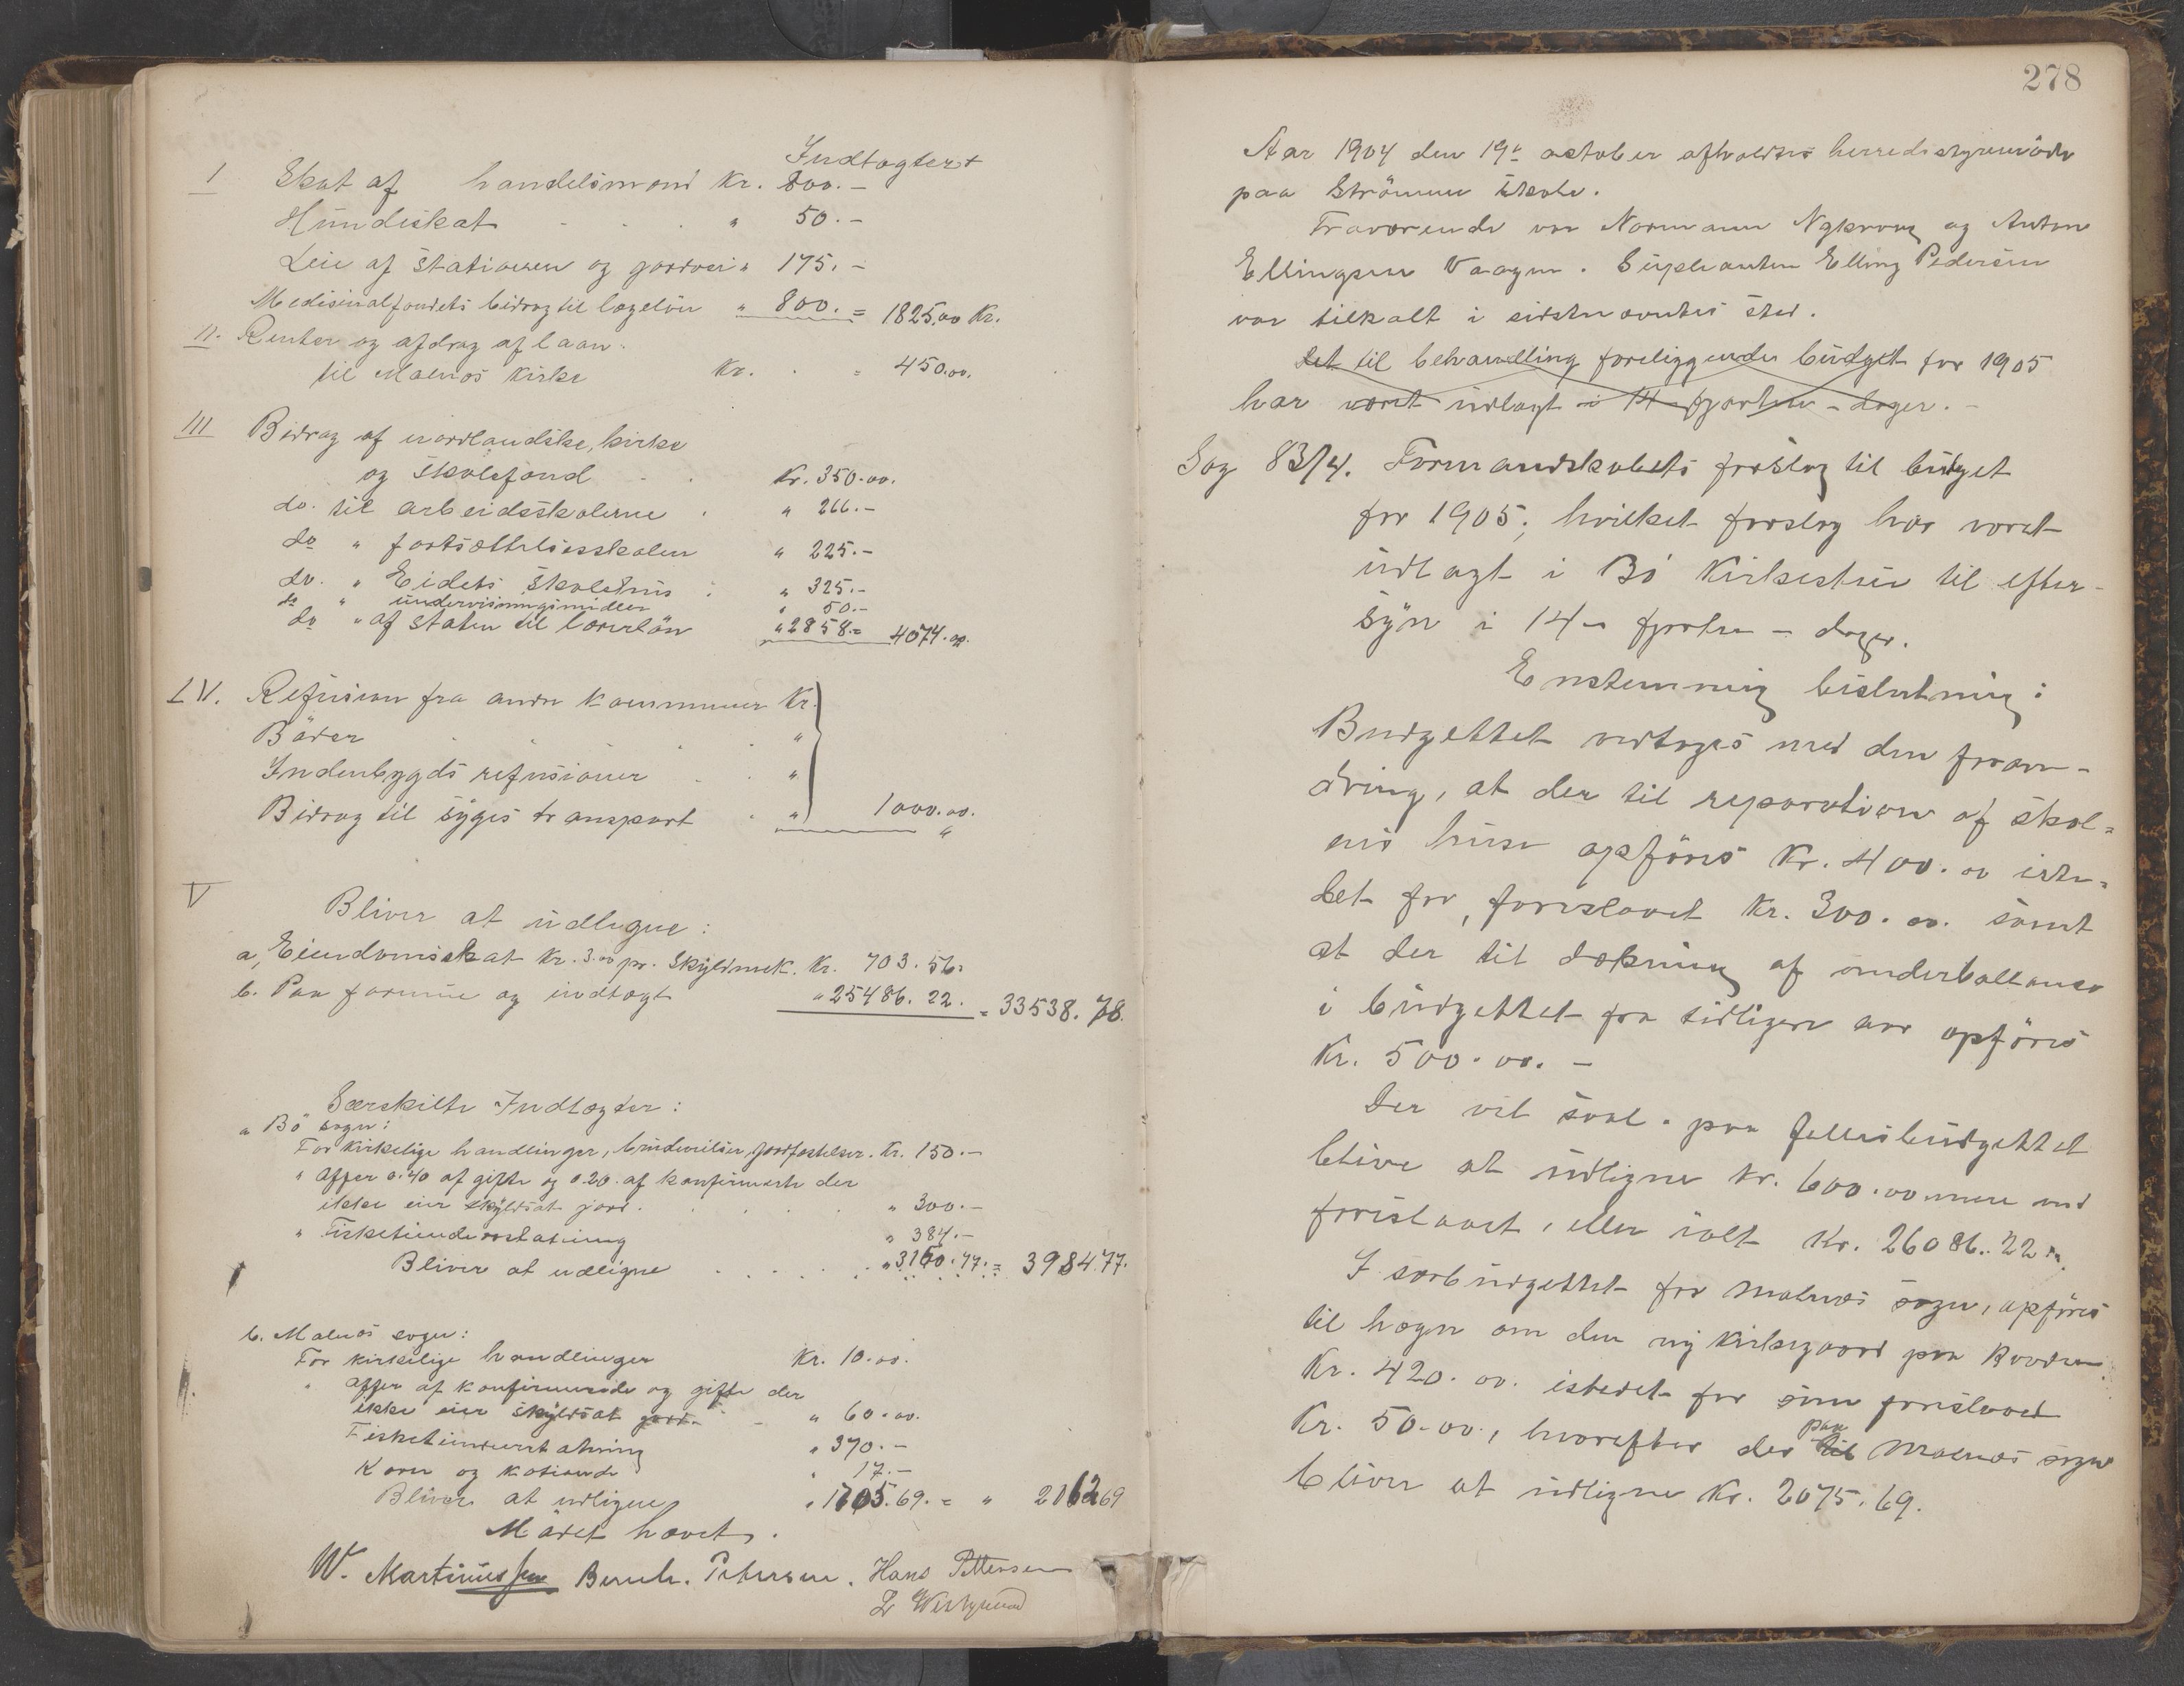 Indtægter
I Skat af handelsmænd Kr. 800.-
Hundeskat " 50.-
Leie af stationen og jordvei " 175.-
Medisinalfondets bidrag til lægelön " 800.- = 1825.00 Kr.
II. Renter og afdrag af laan:
til Malnæs kirke Kr. " 450.00.
III Bidrag af nordlandske, kirke
og skolefond Kr. 350.00.
do. til arbeidsskolerne " 266.-
do " fortsættelsesskolen " 225.-
do. " Eidets skolehus " 325.-
do " undervisningsmidler " 50.-
do " af staten til lærerlön " 2858.- 4074.00.
IV. Refusion fra andre kommuner Kr.
Böder "
Indenbygds refusioner "
Bidrag til syges transport " 1000.00.
V
Bliver at udligne:
a, Eiendomsskat Kr. 3.00 pr. Skyldmrk. Kr. 703.56.
b. Paa formue og indtægt " 25486.22. = 33538.78.
Særskilte Indtægter:
a Bö sogn:
For kirkelige handlinger, brudevielser, jordfæstelser. Kr. 150.-
" offer 0.40 af gifte og 0.20. af konfirmerte der
ikke eier skyldsat jord. " 300.-
" Fisketiendeerstatning " 384.-
Bliver at udligne " 3150.77. = 3984.77.
b. Malnæs sogn:
For kirkelige handlinger Kr. 10.00.
" offer af konfirmerede og gifte der
ikke eier skyldsat jord. " 60.00.
Fisketiendeerstatning " 370.-
Korn og kotiende " 17.-
Bliver at udligne " 1705.69. = " 2162.69
Mödet hævet.
W. Martinussen Bernh. Petersen. Hans Pettersen
278
Aar 1904 den 19de october afholdtes herredstyremöde
paa Strömmen skole.
Fraværende var Normann Nykvaag og Anton
Ellingsen Vaagen. Suplianten Elling Pedersen
var tilkalt i sidstnævntes sted.
Det til behandling foreliggende budget for 1905
har været udlagt i 14 - fjorten - dager.-
Sag 83/4. Formandskabets forslag til budget
for 1905, hvilket forslag har været
udlagt i Bö kirkestue til efter-
syn i 14 - fjorten - dager.
Enstemmig beslutning:
Budgettet vedtages med den foran-
dring, at der til reparation af skol-
ens huse opföres Kr. 400.00 iste-
det for, foreslaaet Kr. 300.00. samt
at der til dækning af underballance
i budgettet fra tidligere aar opföres
Kr. 500.00.-
Der vil saal. paa fællesbudgettet
blive at udligne kr. 600.00 mere end
foreslaaet, eller ialt Kr. 26086.22.
I særbudgettet for Malnæs sogn, opföres
til hegn om den ny kirkegaard paa
Kr. 420.00. istedet for som foreslaaet
Kr. 50.00, hvorefter der til paa Malnæs sogn
bliver at udligne Kr. 2075.69.